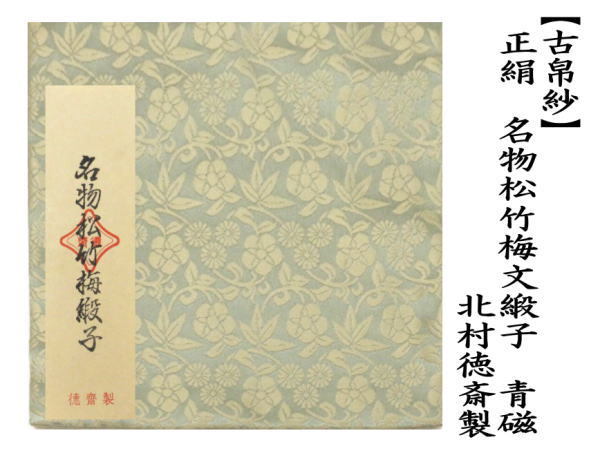 【古帛紗】
正絹 名物松竹梅文緞子 青磁
北村徳斎製
名物松竹梅緞子
徳齋製